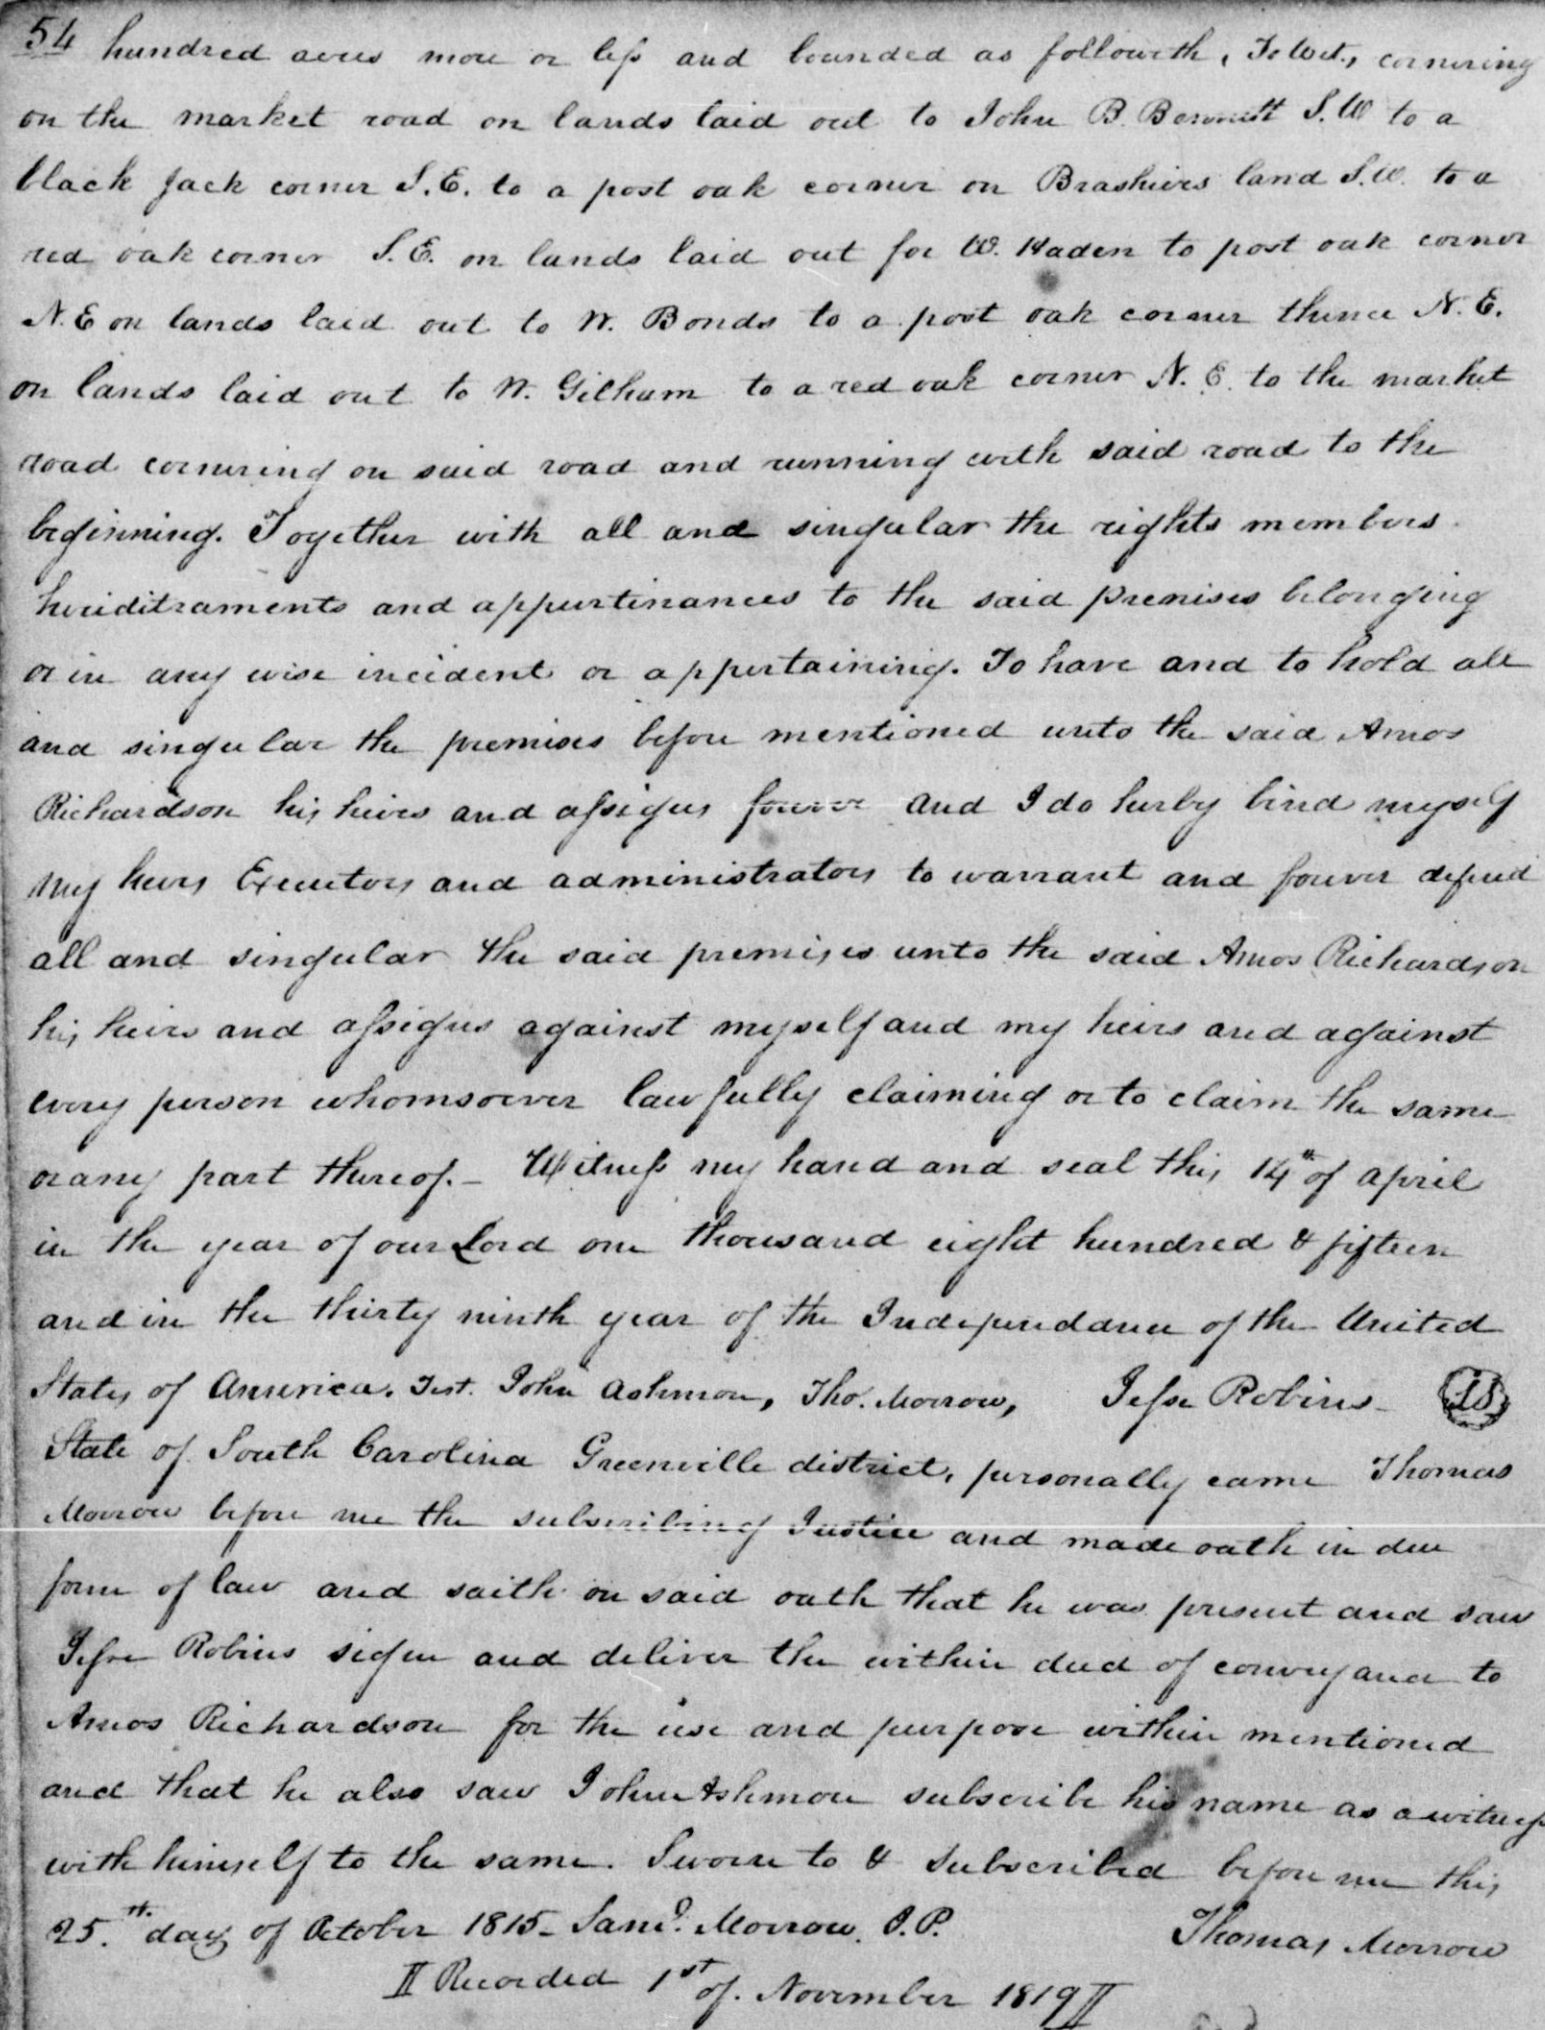 54 hundred acres more or less and bounded as followeth, To Wit, cornering
on the market road on lands laid out to John B. Bennett S.W to a
black Jack corner S.E. to a post oak corner on Brashiers land S.W. to a
red oak corner S.E. on lands laid out for W. Haden to post oak corner
N.E on lands laid out to W. Bonds to a post oak corner thence N.E.
on lands laid out to W. Gilham to a red oak corner N.E. to the market
road cornering on said road and running with said road to the
beginning. Together with all and singular the rights members
heriditraments and appurtinances to the said premises belonging
or in any wise incident or appertaining. To have and to hold all
and singular the premises before mentioned unto the said Amos
Richardson his heirs and assigns forever and I do herby bind myself
my heirs Executors and administrators to warrant and forever defend
all and singular the said premises unto the said Amos Richardson
his heirs and assigns against myself and my heirs and against
every person whomsoever lawfully claiming or to claim the same
or any part thereof. – Witness my hand and seal this 14th of april
in the year of our Lord one thousand eight hundred & fifteen
and in the thirty ninth year of the Independance of the United
States of America. Test. John Ashmore, Tho. Morrow, Jesse Robins LS
State of South Carolina Greenville district, personally came Thomas
Morrow before me the subscribing Justice and made oath in due
form of law and saith on said oath that he was present and saw
Jesse Robins sign and deliver the within deed of conveyance to
Amos Richardson for the use and purpose within mentioned
and that he also saw John Ashmore subscribe his name as a witness
with himself to the same. Sworn to & Subscribed before me this
25.th day of October 1815– Saml. Morrow. J.P. Thomas Morrow
Recorded 1st of. November 1819